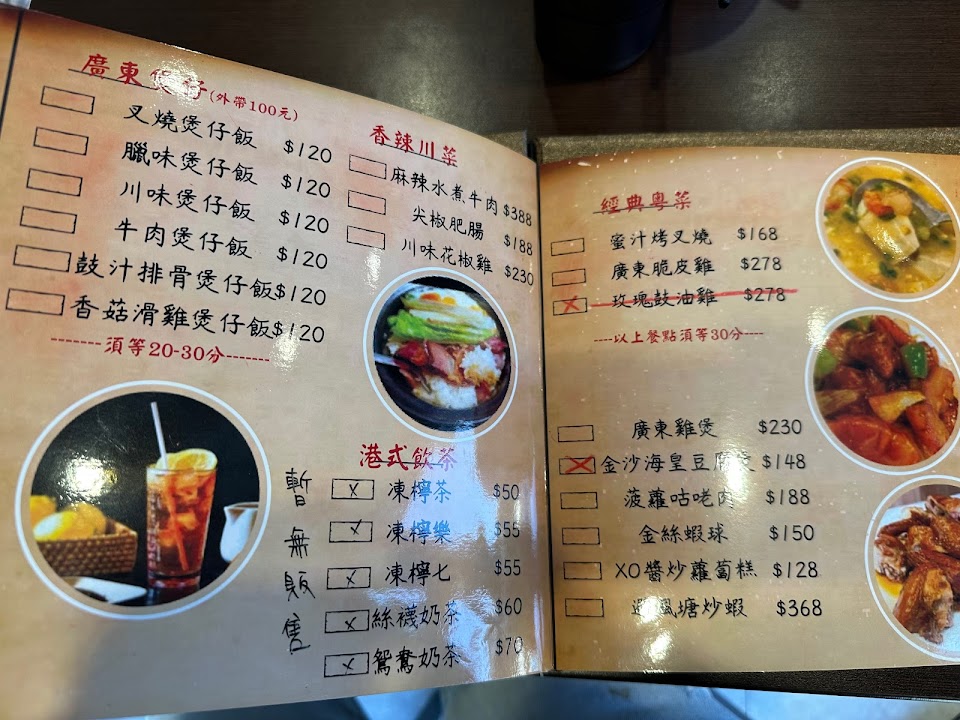 廣東煲仔(外帶100元)
叉燒煲仔飯 $120
臘味煲仔飯 $120
川味煲仔飯 $120
牛肉煲仔飯 $120
鼓汁排骨煲仔飯$120
香菇滑雞煲仔飯$120
-------須等20-30分-------
香辣川菜
麻辣水煮牛肉 $388
尖椒肥腸 $188
川味花椒雞 $230
港式飲茶
暫無販售
凍檸茶 $50
凍檸樂 $55
凍檸七 $55
絲襪奶茶 $60
鴛鴦奶茶 $70
經典粵菜
蜜汁烤叉燒 $168
廣東脆皮雞 $278
玫瑰鼓油雞 $278
----以上餐點須等30分----
廣東雞煲 $230
金沙海皇豆腐煲 $148
菠蘿咕咾肉 $188
金絲蝦球 $150
XO醬炒蘿蔔糕 $128
避風塘炒蝦 $368